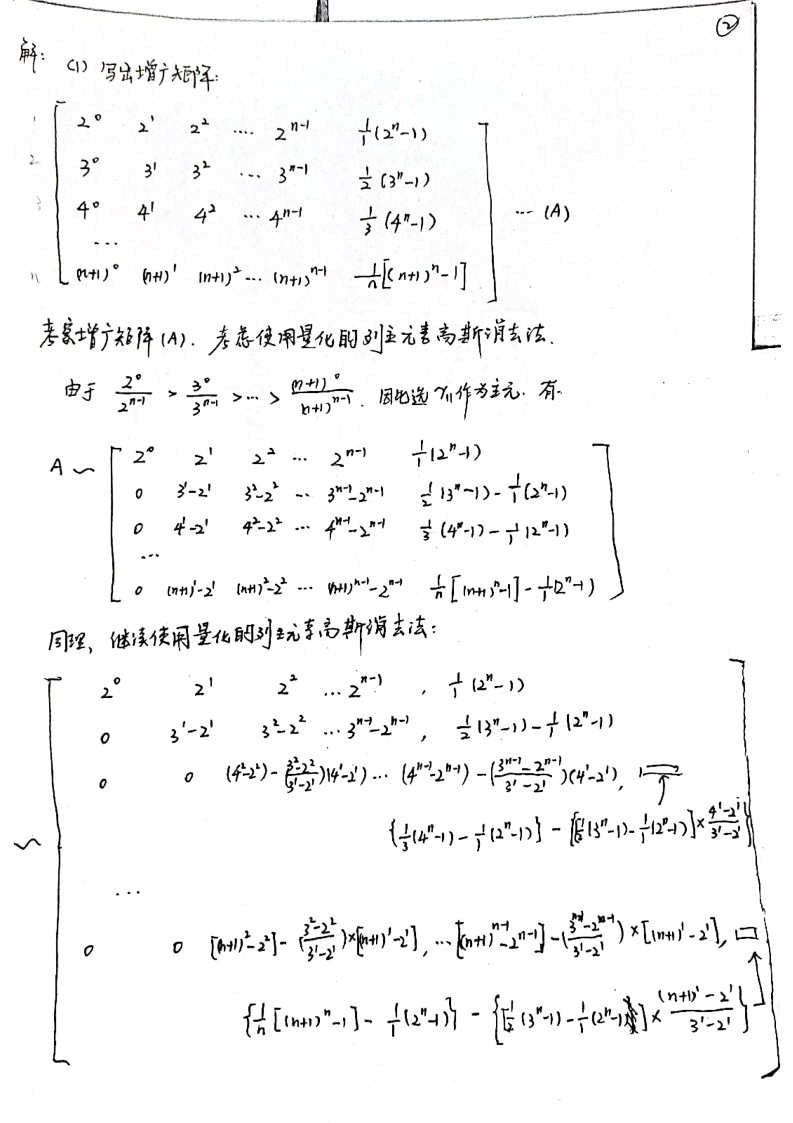 ②
解: (1) 写出增广矩阵:
1 2⁰ 2¹ 2² ···· 2ⁿ⁻¹ 1/1(2ⁿ-1)
2 3⁰ 3¹ 3² ··· 3ⁿ⁻¹ 1/2(3ⁿ-1)
3 4⁰ 4¹ 4² ··· 4ⁿ⁻¹ 1/3(4ⁿ-1) ··· (A)
···
n (n+1)⁰ (n+1)¹ (n+1)² ··· (n+1)ⁿ⁻¹ 1/n[(n+1)ⁿ-1]
考察增广矩阵(A). 考虑使用量化的列主元素高斯消去法.
由于 2⁰/2ⁿ⁻¹ > 3⁰/3ⁿ⁻¹ > ··· > (n+1)⁰/(n+1)ⁿ⁻¹. 因此选 作为主元. 有.
A ~ 2⁰ 2¹ 2² ··· 2ⁿ⁻¹ 1/1(2ⁿ-1)
0 3¹-2¹ 3²-2² ··· 3ⁿ⁻¹-2ⁿ⁻¹ 1/2(3ⁿ-1)-1/1(2ⁿ-1)
0 4¹-2¹ 4²-2² ··· 4ⁿ⁻¹-2ⁿ⁻¹ 1/3(4ⁿ-1)-1/1(2ⁿ-1)
···
0 (n+1)¹-2¹ (n+1)²-2² ··· (n+1)ⁿ⁻¹-2ⁿ⁻¹ 1/n[(n+1)ⁿ-1]-1/1(2ⁿ-1)
同理, 继续使用量化的列主元素高斯消去法:
2⁰ 2¹ 2² ··· 2ⁿ⁻¹, 1/1(2ⁿ-1)
0 3¹-2¹ 3²-2² ··· 3ⁿ⁻¹-2ⁿ⁻¹, 1/2(3ⁿ-1)-1/1(2ⁿ-1)
0 0 (4²-2²)-(3²-2²/3¹-2¹)(4¹-2¹) ··· (4ⁿ⁻¹-2ⁿ⁻¹)-(3ⁿ⁻¹-2ⁿ⁻¹/3¹-2¹)(4¹-2¹),
{1/3(4ⁿ-1)-1/1(2ⁿ-1)}-{[1/2(3ⁿ-1)-1/1(2ⁿ-1)]×4¹-2¹/3¹-2¹}
~
···
0 0 [(n+1)²-2²]-(3²-2²/3¹-2¹)×[(n+1)¹-2¹], ··· [(n+1)ⁿ⁻¹-2ⁿ⁻¹]-(3ⁿ⁻¹-2ⁿ⁻¹/3¹-2¹)×[(n+1)¹-2¹],
{1/n[(n+1)ⁿ-1]-1/1(2ⁿ-1)}-{[1/2(3ⁿ-1)-1/1(2ⁿ-1)]×(n+1)¹-2¹/3¹-2¹}